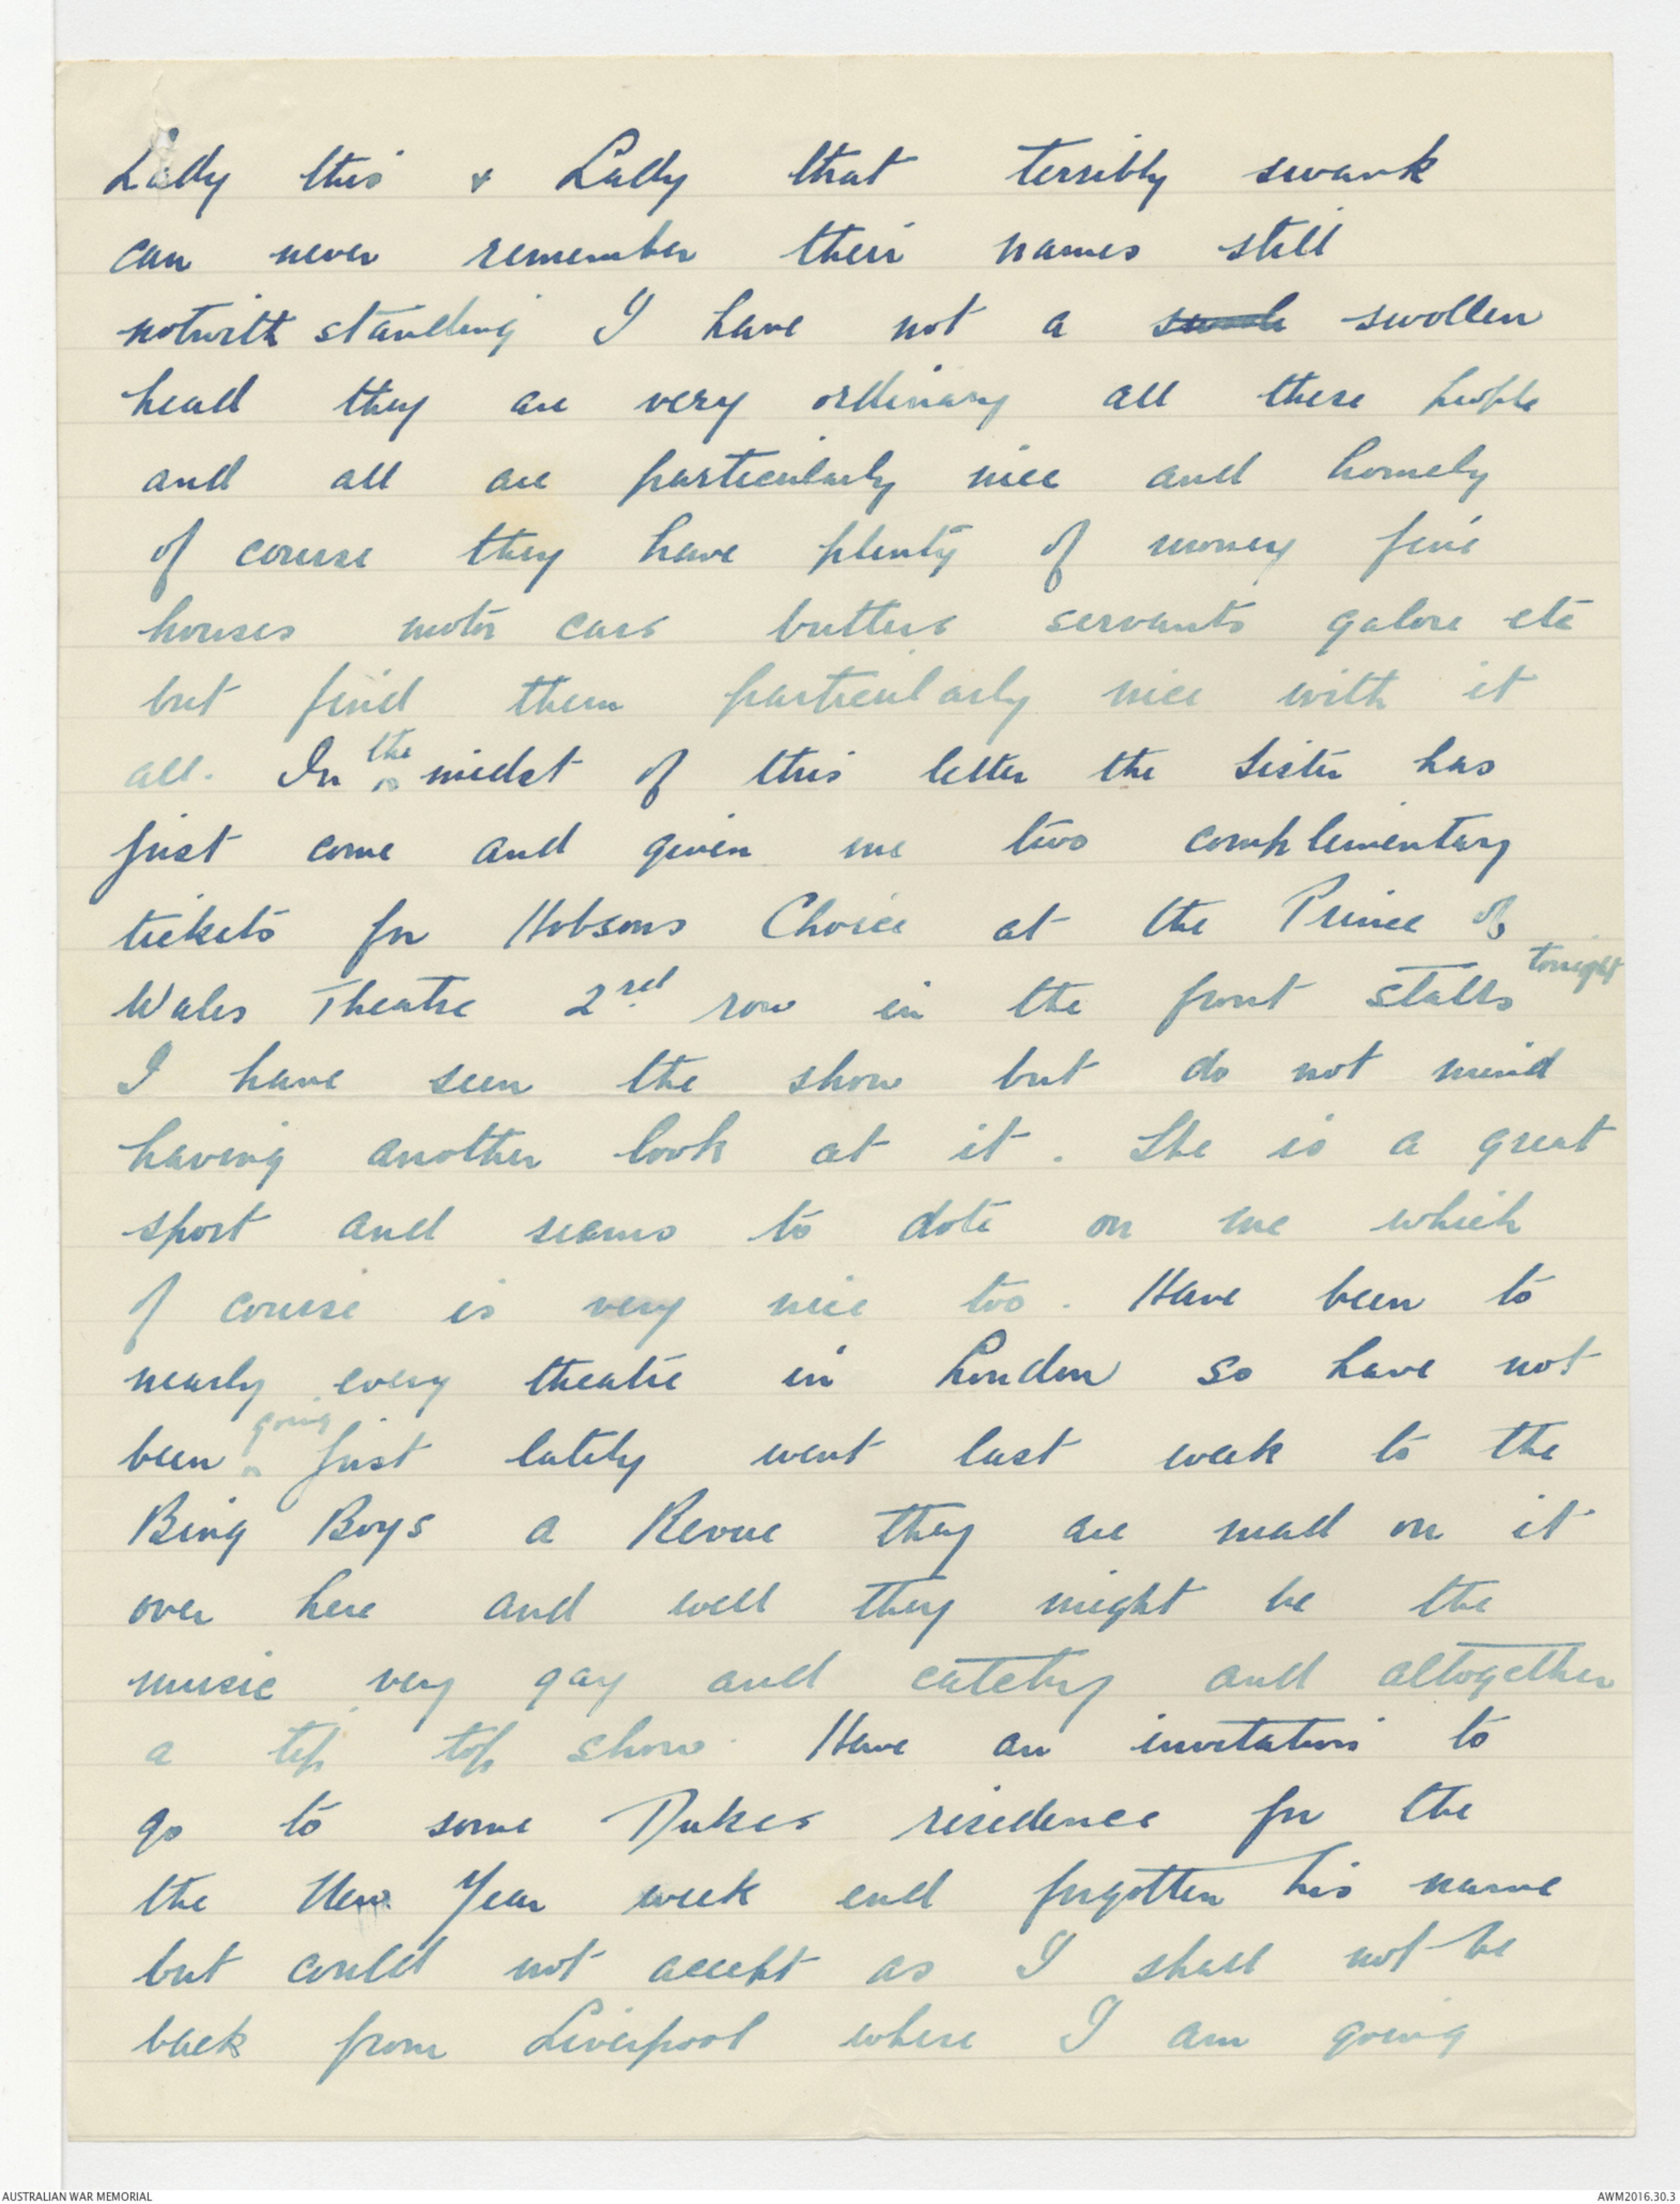 Lady this & Lady that terribly swank
can never remember their names still
notwith standing I have not a swollen
head they are very ordinary all these people
and all are particularly nice and homely
of course they have plenty of money fine
houses motor cars buttlers servants galore etc
but find them particularly nice with it
all. In the midst of this letter the Sister has
just come and given me two complementary
tickets for Hobsons Choice at the Prince of
Wales Theatre 2nd row in the front stalls tonight
I have seen the show but do not mind
having another look at it. She is a great
sport and seems to dote on me which
of course is very nice too. Have been to
nearly every theatre in London so have not
been going just lately went last week to the
Bing Boys a Revue they are mad on it
over here and well they might be the
music very gay and catchy and altogether
a tip top show. Have an invitation to
go to some Dukes residence for the
the New Year week end forgotten his name
but could not accept as I shall not be
back from Liverpool where I am going
AUSTRALIAN WAR MEMORIAL
AWM2016.30.3